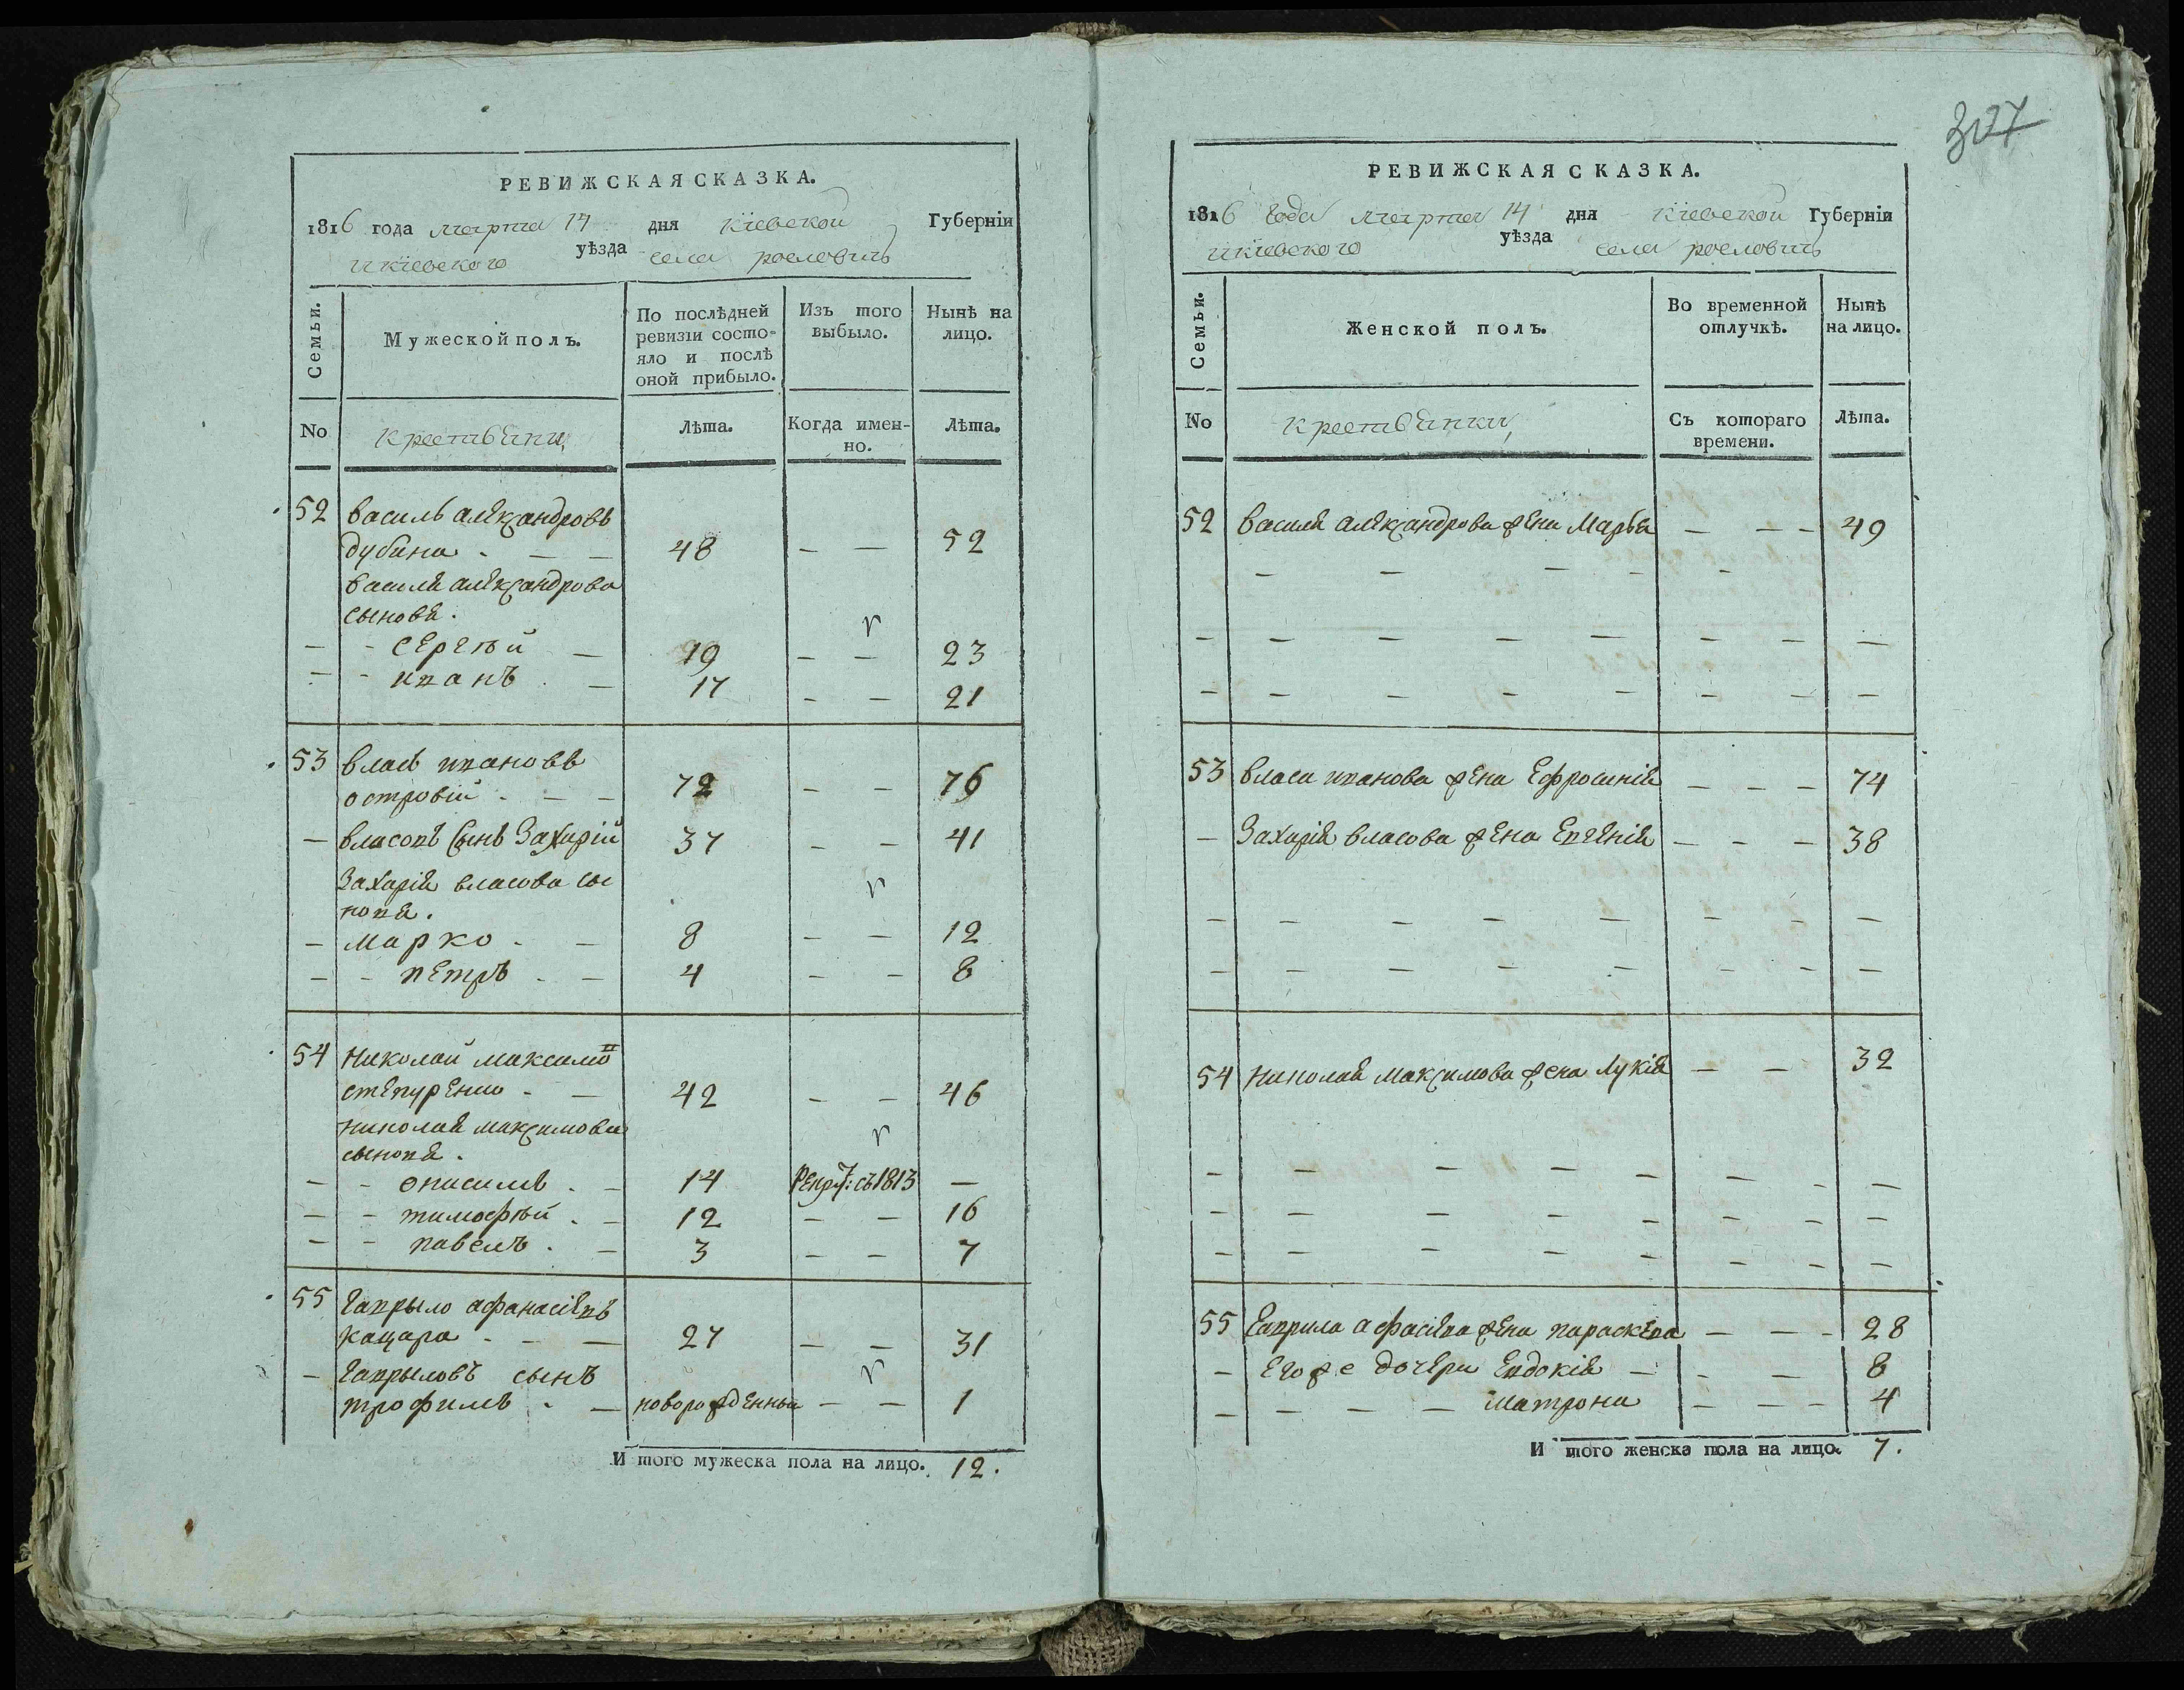 327
РЕВИЖСКАЯ СКАЗКА.
1816 года марта 14 дня Кіевской Губерніи
и кіевского уѣзда села рословичъ
Семьи.
Мужеской полъ.
По послѣдней ревизіи состо-
яло и послѣ
оной прибыло.
Изъ того
выбыло.
Нынѣ на
лицо.
No
крестьяни
Лѣта.
Когда имен-
но.
Лѣта.
52 василь александровъ
дубина - — — 48 — — 52
василя александрова
сыновя.
— - сергѣй — 19 — — 23
— - иванъ - — 17 — — 21
53 власъ ивановъ
островій - — — 72 — — 76
— власовъ сынъ Захарій 37 — — 41
Захарія власова сы
новя.
— марко - — 8 — — 12
— - петръ - — 4 — — 8
54 николай максимов
степуренко - — 42 — — 46
николая максимова
сыновя.
— - онисимъ - — 14 Рекру: съ 1813 —
— - тимофѣй - — 12 — — 16
— - павелъ - — 3 — — 7
55 гаврыло афанасіевъ
кацара - — — 27 — — 31
— гаврыловъ сынъ
трофимъ - — новорожденный — — 1
И того мужеска пола на лицо. 12.
РЕВИЖСКАЯ СКАЗКА.
1816 года марта 14 дня Кіевской Губерніи
и кіевского уѣзда села рословичъ
Семьи.
Женской полъ.
Во временной
отлучкѣ.
Нынѣ
на лицо.
No
крестьянки
Съ котораго
времени.
Лѣта.
52 василя александрова жена Марья — — - 49
53 власа иванова жена Ефросинія — — — 74
— Захарія власова жена Евгенія — — — 38
54 николая максимова жена Лукія — — 32
55 гаврила афасіева жена параскева — — - 28
— его же дочери Евдокія — - — — 8
— — — — Матрона — — - 4
И того женска пола на лицо. 7.